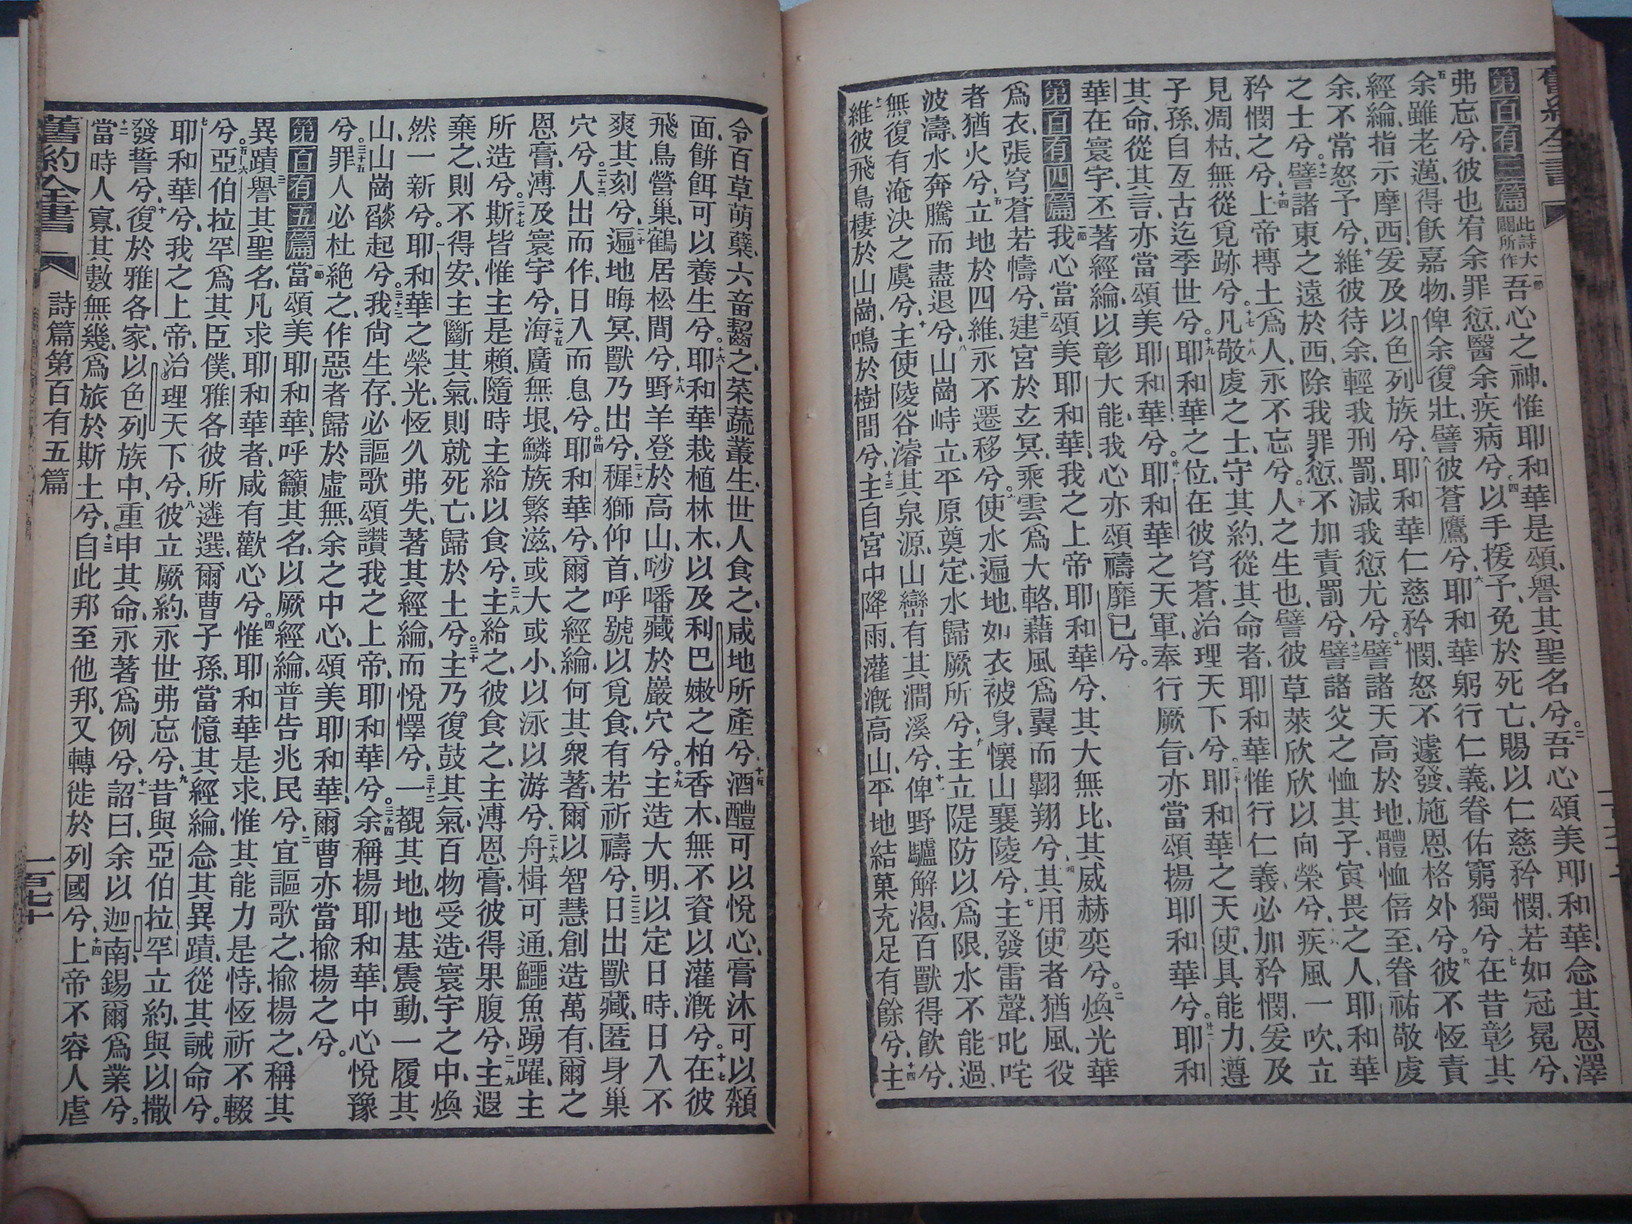 舊約全書
第百有三篇
此詩大
闢所作
吾心之神、惟耶和華是頌、譽其聖名兮、吾心頌美耶和華、念其恩澤
弗忘兮、彼也宥余罪愆、醫余疾病兮、以手援予、免於死亡、賜以仁慈矜憫、若如冠冕兮、
余雖老邁、得飫嘉物、俾余復壯、譬彼蒼鷹兮、耶和華躬行仁義、眷佑窮獨兮、在昔彰其
經綸、指示摩西、爰及以色列族兮、耶和華仁慈矜憫、怒不遽發、施恩格外兮、彼不恆責
余、不常怒予兮、維彼待余、輕我刑罰、減我愆尤兮、譬諸天高於地、體恤倍至、眷祐敬虔
之士兮、譬諸東之遠於西、除我罪愆、不加責罰兮、譬諸父之恤其子、寅畏之人、耶和華
矜憫之兮、上帝摶土爲人、永不忘兮、人之生也、譬彼草萊、欣欣以向榮兮、疾風一吹、立
見凋枯、無從覓跡兮、凡敬虔之士、守其約、從其命者、耶和華惟行仁義、必加矜憫、爰及
子孫、自亙古迄季世兮、耶和華之位、在彼穹蒼、治理天下兮、耶和華之天使、具能力、遵
其命、從其言、亦當頌美耶和華兮、耶和華之天軍、奉行厥旨、亦當頌揚耶和華兮、耶和
華在寰宇、丕著經綸、以彰大能、我心亦頌禱靡已兮。
第百有四篇 我心當頌美耶和華、我之上帝耶和華兮、其大無比、其威赫奕兮、煥光華
爲衣、張穹蒼若幬兮、建宮於玄冥、乘雲爲大輅、藉風爲翼而翺翔兮、其用使者猶風、役
者猶火兮、立地於四維、永不遷移兮、使水遍地、如衣被身、懷山襄陵兮、主發雷聲、叱咤
波濤、水奔騰而盡退兮、山崗峙立、平原奠定、水歸厥所兮、主立隄防以爲限、水不能過、
無復有淹決之虞兮、主使陵谷濬其泉源、山巒有其澗溪兮、俾野驢解渴、百獸得飲兮、
維彼飛鳥、棲於山崗、鳴於樹間兮、主自宮中降雨、灌漑高山、平地結菓、充足有餘兮、主
令百草萌蘖、六畜齧之、菜蔬叢生、世人食之、咸地所產兮、酒醴可以悅心、膏沐可以纇
面、餅餌可以養生兮、耶和華栽植林木、以及利巴嫩之柏香木、無不資以灌漑兮、在彼
飛鳥營巢、鶴居松間兮、野羊登於高山、𠵇噃藏於巖穴兮、主造大明、以定日時、日入不
爽其刻兮、遍地晦冥、獸乃出兮、穉獅仰首、呼號以覓食、有若祈禱兮、日出獸藏、匿身巢
穴兮、人出而作、日入而息兮、耶和華兮、爾之經綸、何其衆著、爾以智慧創造萬有、爾之
恩膏、溥及寰宇兮、海廣無垠、鱗族繁滋、或大或小、以泳以游兮、舟楫可通、鱷魚踴躍、主
所造兮、斯皆惟主是賴、隨時主給以食兮、主給之、彼食之、主溥恩膏、彼得果腹兮、主遐
棄之、則不得安、主斷其氣、則就死亡、歸於土兮、主乃復鼓其氣、百物受造、寰宇之中、煥
然一新兮。耶和華之榮光恆久弗失、著其經綸而悅懌兮、一覩其地、地基震動、一履其
山、山崗燄起兮、我尙生存、必謳歌頌讚我之上帝、耶和華兮、余稱揚耶和華、中心悅豫
兮、罪人必杜絶之、作惡者歸於虛無、余之中心、頌美耶和華、爾曹亦當揄揚之兮。
第百有五篇 當頌美耶和華、呼籲其名、以厥經綸、普告兆民兮、宜謳歌之、揄揚之、稱其
異蹟、譽其聖名、凡求耶和華者、咸有歡心兮、惟耶和華是求、惟其能力是恃、恆祈不輟
兮、亞伯拉罕爲其臣僕、雅各彼所遴選、爾曹子孫、當憶其經綸、念其異蹟、從其誡命兮。
耶和華兮、我之上帝、治理天下兮、彼立厥約、永世弗忘兮、昔與亞伯拉罕立約、與以撒
發誓兮、復於雅各家、以色列族中、重申其命、永著爲例兮、詔曰、余以迦南錫爾爲業兮。
當時人寡、其數無幾、爲旅於斯土兮、自此邦至他邦、又轉徙於列國兮、上帝不容人虐
舊約全書
詩篇第百有五篇